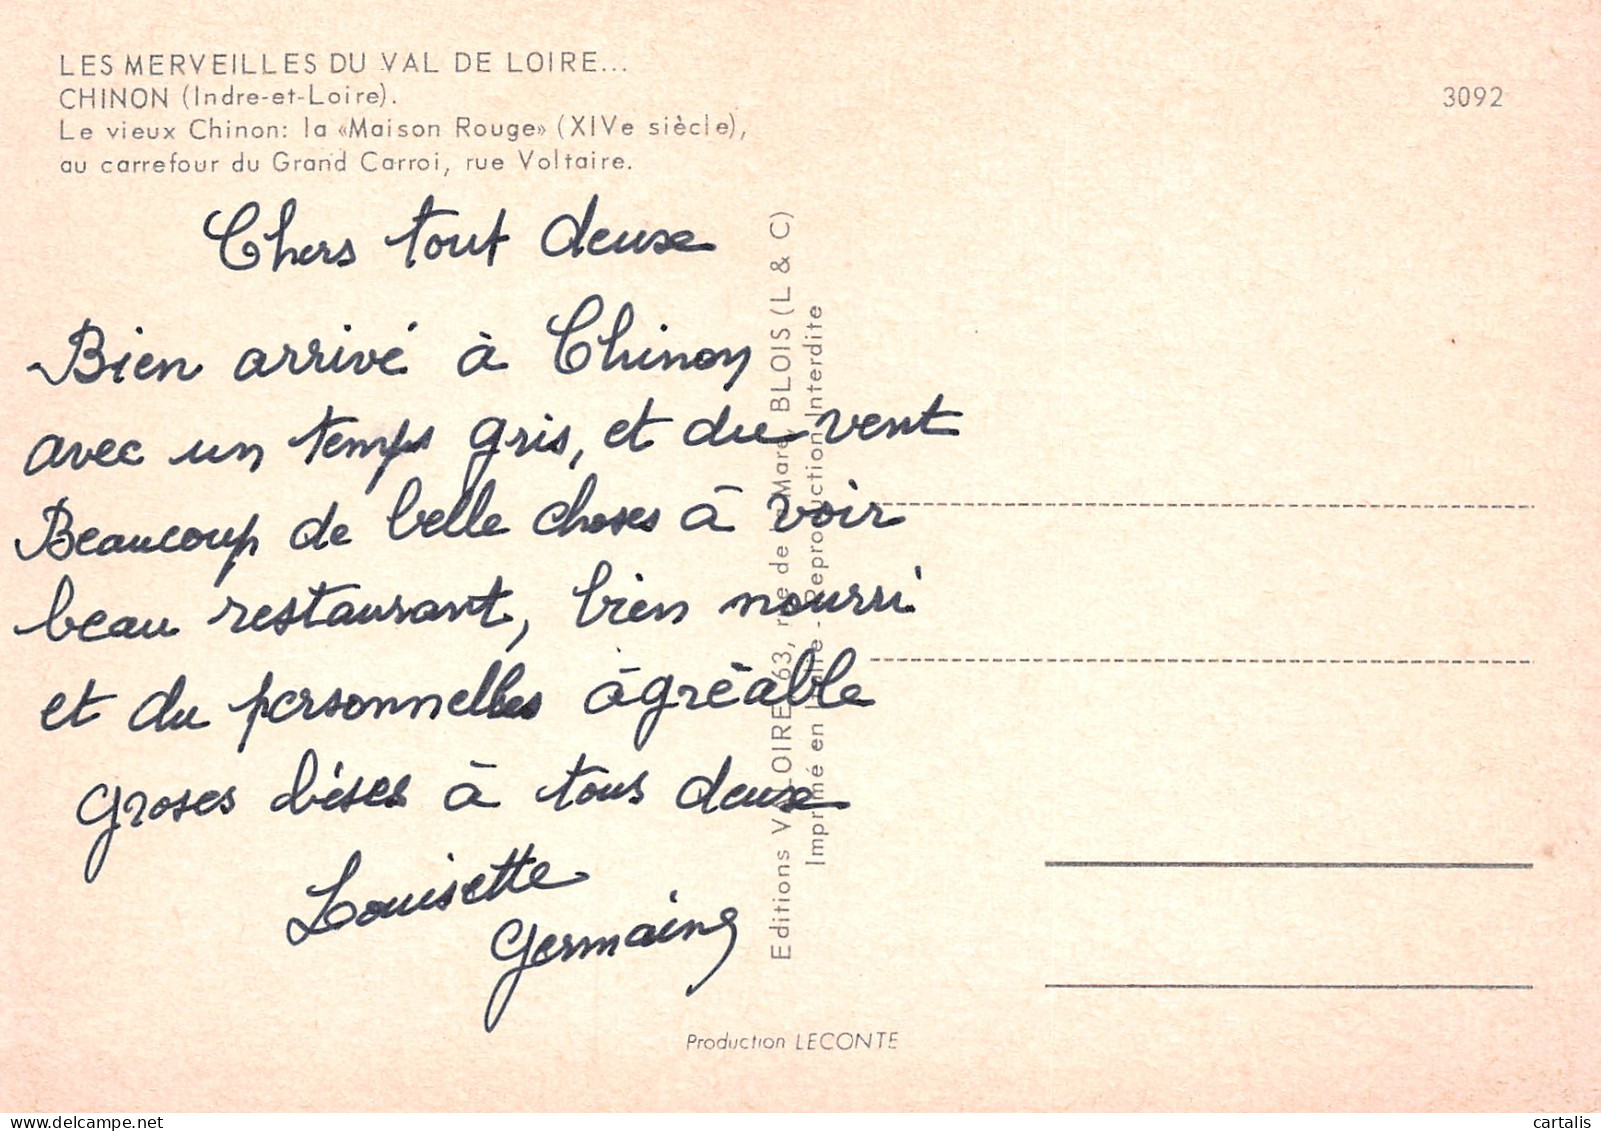 LES MERVEILLES DU VAL DE LOIRE...
CHINON (Indre-et-Loire).
Le vieux Chinon: la «Maison Rouge» (XIVe siècle),
au carrefour du Grand Carroi, rue Voltaire.
3092
Chers tout deuse
Bien arrivé à Chinon
avec un temps gris, et du vent
Beaucoup de belle choses à voir
beau restaurant, bien nourri
et du personnelles àgrèable
groses bises à tous deuse
Louisette
Germaine
Editions VALOIRE, 63, rue de Marey BLOIS (L & C)
Imprimé en Italie - Reproduction Interdite
Production LECONTE
cartalis
delcampe.net